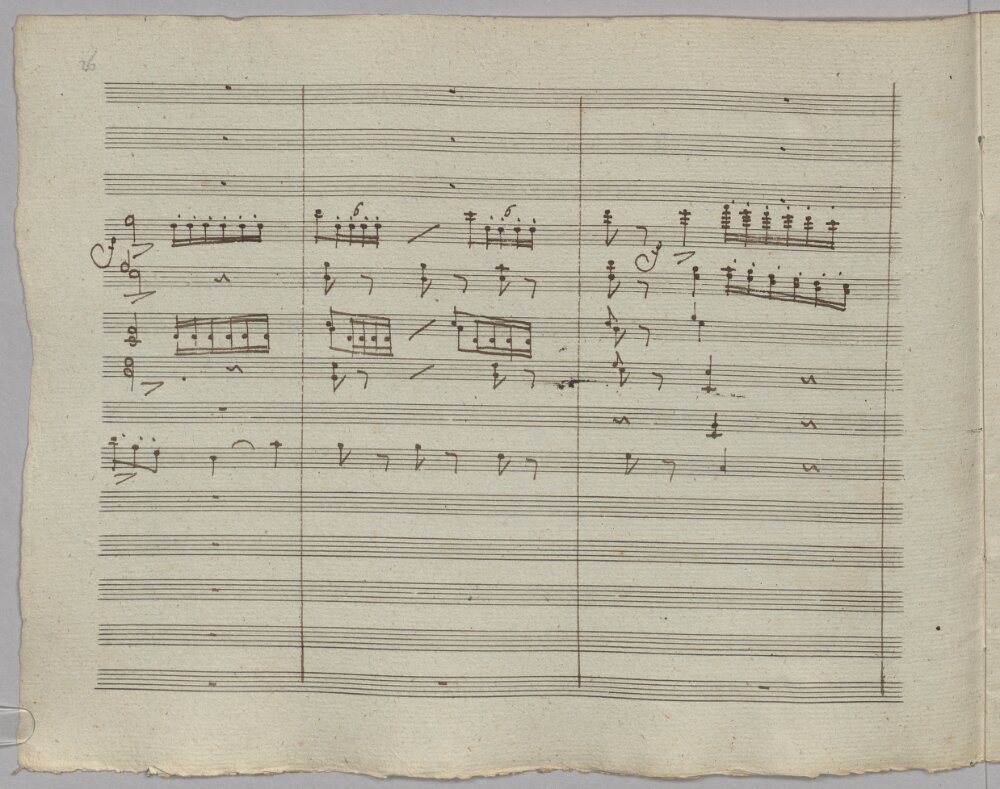 26
6 6
f f